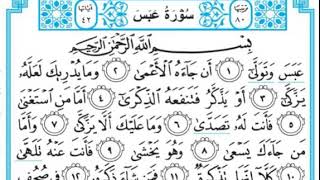 سُورَةُ عَبَسَ
بِسْمِ اللَّهِ الرَّحْمَنِ الرَّحِيمِ
عَبَسَ وَتَوَلَّىٰٓ ١ أَن جَآءَهُ ٱلْأَعْمَىٰ ٢ وَمَا يُدْرِيكَ لَعَلَّهُۥ
يَزَّكَّىٰٓ ٣ أَوْ يَذَّكَّرُ فَتَنفَعَهُ ٱلذِّكْرَىٰٓ ٤ أَمَّا مَنِ ٱسْتَغْنَىٰ
٥ فَأَنتَ لَهُۥ تَصَدَّىٰ ٦ وَمَا عَلَيْكَ أَلَّا يَزَّكَّىٰ ٧ وَأَمَّا
مَن جَآءَكَ يَسْعَىٰ ٨ وَهُوَ يَخْشَىٰ ٩ فَأَنتَ عَنْهُ تَلَهَّىٰ
١٠ كَلَّآ إِنَّهَا تَذْكِرَةٌ ١١ فَمَن شَآءَ ذَكَرَهُۥ ١٢ فِي صُحُفٍ